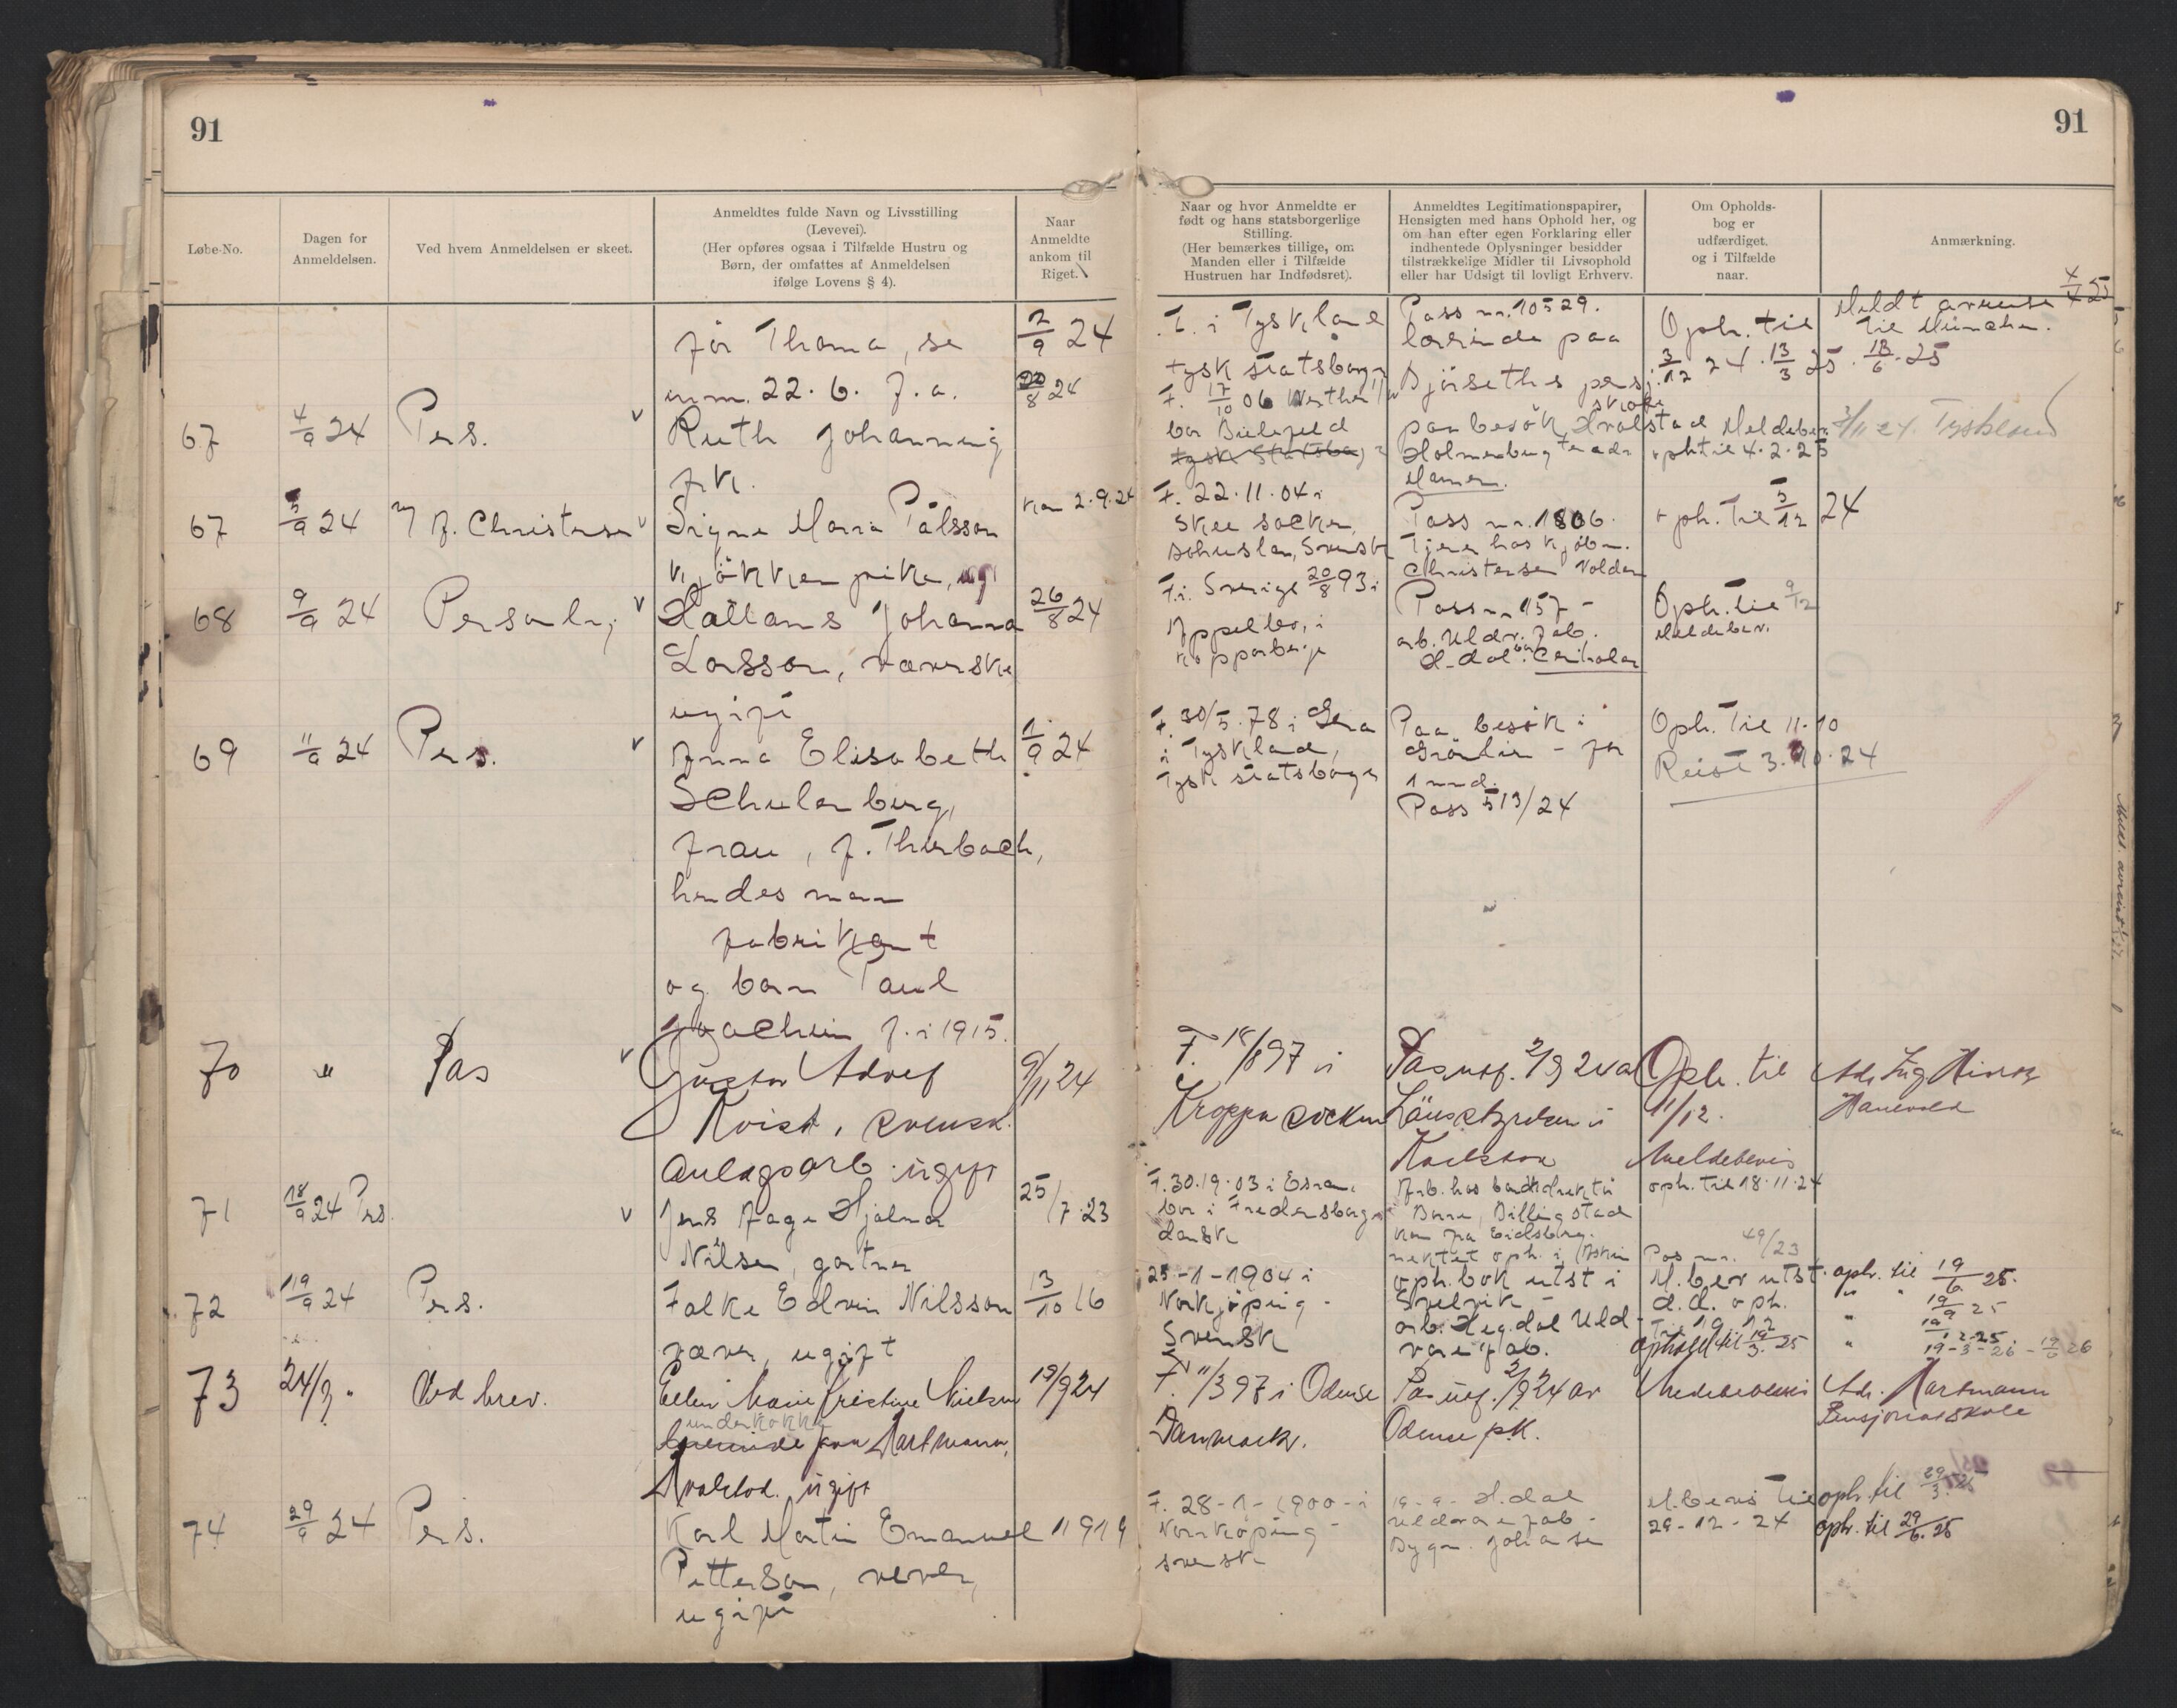 91
91
Løbe-No.
Dagen for
Anmeldelsen.
Ved hvem Anmeldelsen er skeet.
Anmeldtes fulde Navn og Livsstilling
(Levevei).
(Her opføres ogsaa i Tilfælde Hustru og
Børn, der omfattes af Anmeldelsen
ifølge Lovens § 4).
Naar
Anmeldte
ankom til
Riget.
Naar og hvor Anmeldte er
født og hans statsborgerlige
Stilling.
(Her bemærkes tillige, om
Manden eller i Tilfælde
Hustruen har Indfødsret).
Anmeldtes Legitimationspapirer,
Hensigten med hans Ophold her, og
om han efter egen Forklaring eller
indhentede Oplysninger besidder
tilstrækkelige Midler til Livsophold
eller har Udsigt til lovligt Erhverv.
Om Opholds-
bog er
udfærdiget,
og i Tilfælde
naar.
Anmærkning.
før Thoma, se
num. 22. 6. f. a.
2/9 24
F. i Tyskland
tysk statsborger
Pass nr. 10529.
lærerinde paa
Oph. til
3/12 24 . 13/3 25 . 13/6 . 25
Meldt avreise 4/4 25
til München.
67
4/9 24
Pers.
Ruth Johanning
frk.
8 24
F. 17/10 06
bor Bielefeld
tysk statsborger
paa besøk Hvalstad
Meldebev.
oph til 4. 2. 25
3/11 24. Tyskland
67
5/9 24
J. Christensen
Signe Maria Pålsson
kjøkkenpike, ug
kom 2.9.24
F. 22.11.04 i
Skee socken,
Bohuslän, Svensk
Pass nr. 1806.
Tjener hos kjøbm.
Christensen Volden
oph. til 5/12 24
68
9/9 24
Personlig
Hallans Johanna
Larsson, væverske
ugift
26/8 24
F. i Sverige 20/8 93 i
Äppelbo, i
Kopparberg
Pass nr 157 -
arb. Uldv. fab.
Oph. til 9/12
Meldebev.
69
11/9 24
Pers.
Anna Elisabeth
Schulenburg,
frau, f. Thurbach,
hendes man
fabrikant
og barn Paul
Joachim f. i 1915.
1/9 24
F. 30/5. 78 i Gera
i Tyskland,
Tysk statsborger
Paa besøk i
for
1 mnd.
Pass 513/24
Oph. til 11.10
Reist 3.10.24
70
"
Pas
Gustav Adolf
Kvist, svensk.
anlægsarb. ugift
9/11 24
F. 18/8 97 i
Kroppa socken
Pas utf. 2/9 24 av
Länsstyrelsen i
Karlstad
Oph. til
11/12.
Meldebevis
Adr. Ing.
Hanevold
71
18/9 24
Pers.
Jens Aage Hjalmar
Nilsen, gartner
25/7 23
bor i Fredensborg
dansk
Arb. hos bankdirektør
Billingstad
nektet oph. i
oph. til 18.11.24
Pas nr. 49/23
72
19/9 24
Pers.
Folke Edvin Nilsson
væver, ugift
13/10 16
25-1-1904 i
Norkjøping -
Svensk
oph.bok utst i
Svelvik -
arb. Heg.dal Uld-
varefab.
M. bev utst.
d.d. oph.
til 19.12
Ophold til 19/3. 25
oph. til 19/6 25.
" " 19/9 25
" 19/12 25
" 19-3-26 - 19/6 26
73
24/9 "
Ved brev.
Ellen Marie Kristine Nielsen
underkokke
lærerinde paa Hartmann,
Hvalstad. ugift
19/9 24
F. 11/3 97 i Odense
Danmark.
Pas utf. 2/9 24 av
Odense pk.
Meldebevis
Adr. Hartmann
Pensjonatskole
74
29/9 24
Pers.
Karl Martin Emanuel
Petterson, vever,
ugift
1919
F. 28-1-1900 - i
Norrköping -
svensk
H.dal
uldvarefab -
Bygn. Johansen
M. bevis til
29-12-24
oph. til 29/3 25
oph. til 29/6. 25